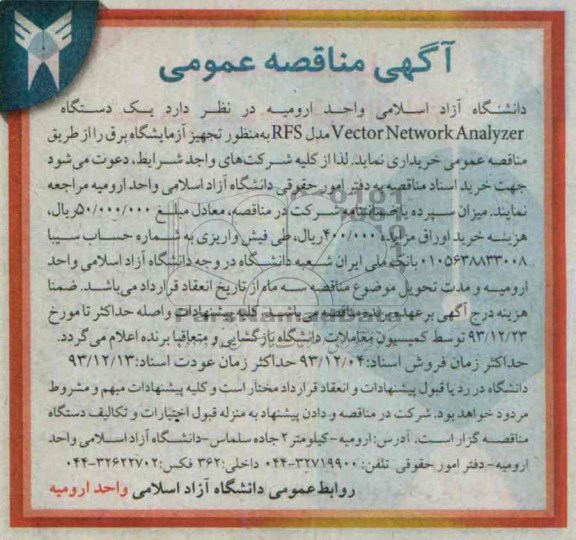 آگهی مناقصه عمومی
دانشگاه آزاد اسلامی واحد ارومیه در نظر دارد یک دستگاه
Vector Network Analyzer مدل RFS به‌منظور تجهیز آزمایشگاه برق را از طریق
مناقصه عمومی خریداری نماید. لذا از کلیه شرکت‌های واجد شرایط، دعوت می‌شود
جهت خرید اسناد مناقصه به دفتر امور حقوقی دانشگاه آزاد اسلامی واحد ارومیه مراجعه
نمایند. میزان سپرده یا ضمانتنامه شرکت در مناقصه، معادل مبلغ ۵۰/۰۰۰/۰۰۰ریال،
هزینه خرید اوراق مزایده ۴۰۰/۰۰۰ریال، طی فیش واریزی به شماره حساب سیبا
۰۱۰۵۶۳۸۸۳۳۰۰۸ بانک ملی ایران شعبه دانشگاه در وجه دانشگاه آزاد اسلامی واحد
ارومیه و مدت تحویل موضوع مناقصه سه ماه از تاریخ انعقاد قرارداد می‌باشد. ضمنا
هزینه درج آگهی برعهده برنده مناقصه می‌باشد. کلیه پیشنهادات واصله حداکثر تا مورخ
۹۳/۱۲/۲۳ توسط کمیسیون معاملات دانشگاه بازگشایی و متعاقبا برنده اعلام می‌گردد.
حداکثر زمان فروش اسناد: ۹۳/۱۲/۰۴ حداکثر زمان عودت اسناد: ۹۳/۱۲/۱۳
دانشگاه در رد یا قبول پیشنهادات و انعقاد قرارداد مختار است و کلیه پیشنهادات مبهم و مشروط
مردود خواهد بود. شرکت در مناقصه و دادن پیشنهاد به منزله قبول اختیارات و تکالیف دستگاه
مناقصه گزار است. آدرس: ارومیه-کیلومتر ۲ جاده سلماس-دانشگاه آزاد اسلامی واحد
ارومیه-دفتر امور حقوقی تلفن: ۳۲۷۱۹۹۰۰-۰۴۴ داخلی: ۳۶۲ فکس: ۳۲۶۲۲۷۰۲-۰۴۴
روابط عمومی دانشگاه آزاد اسلامی واحد ارومیه